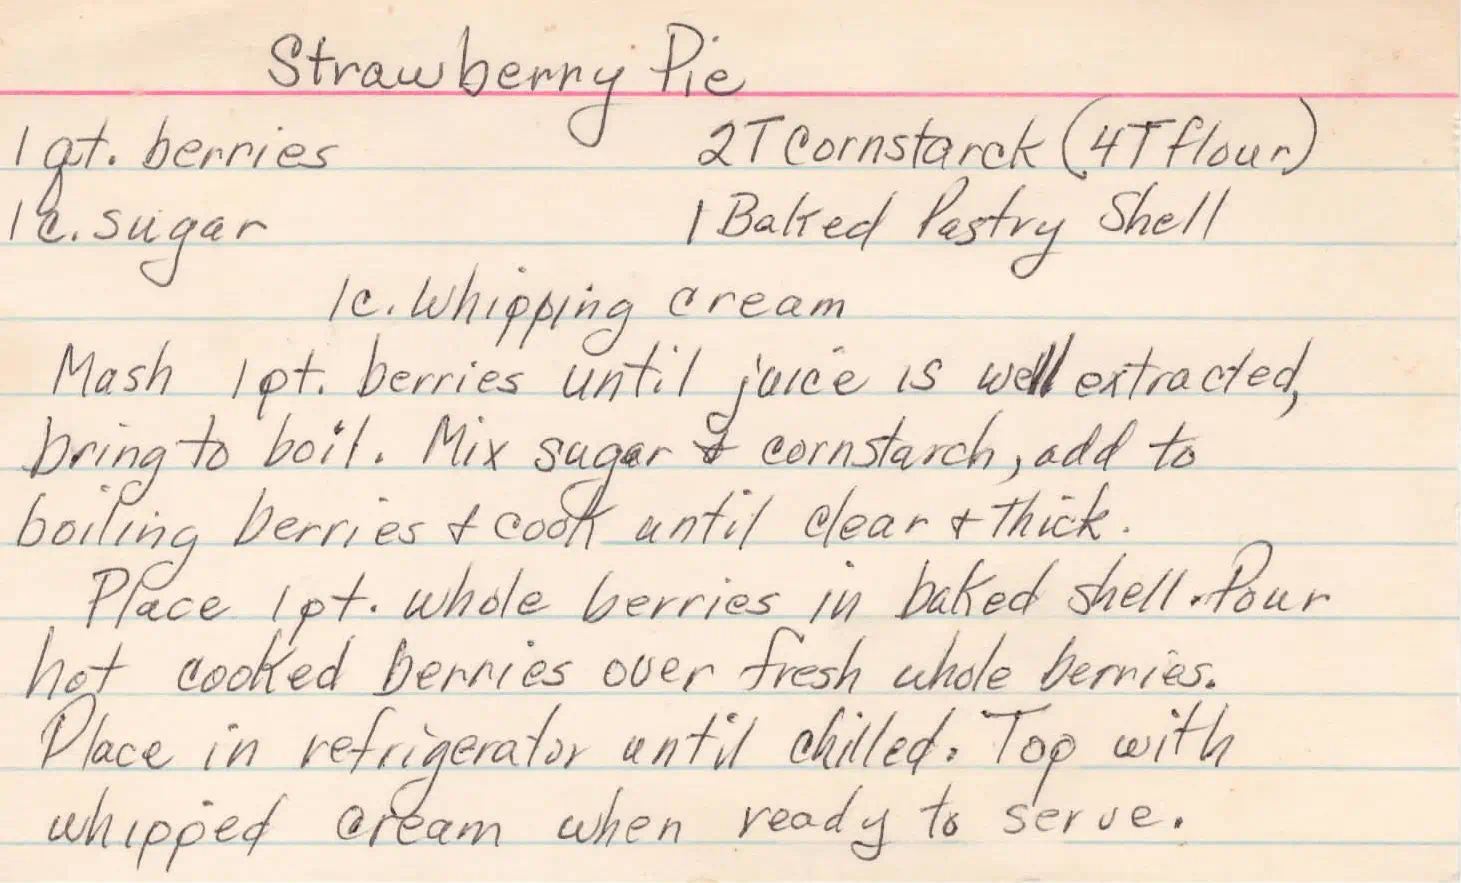 Strawberry Pie
1 qt. berries 2T Cornstarck (4T flour)
1c. sugar 1 Baked Pastry Shell
1c. Whipping cream
Mash 1pt. berries until juice is well extracted,
bring to boil. Mix sugar & cornstarch, add to
boiling berries & cook until clear & thick.
Place 1pt. whole berries in baked shell. Pour
hot cooked berries over fresh whole berries.
Place in refrigerator until chilled. Top with
whipped cream when ready to serve.